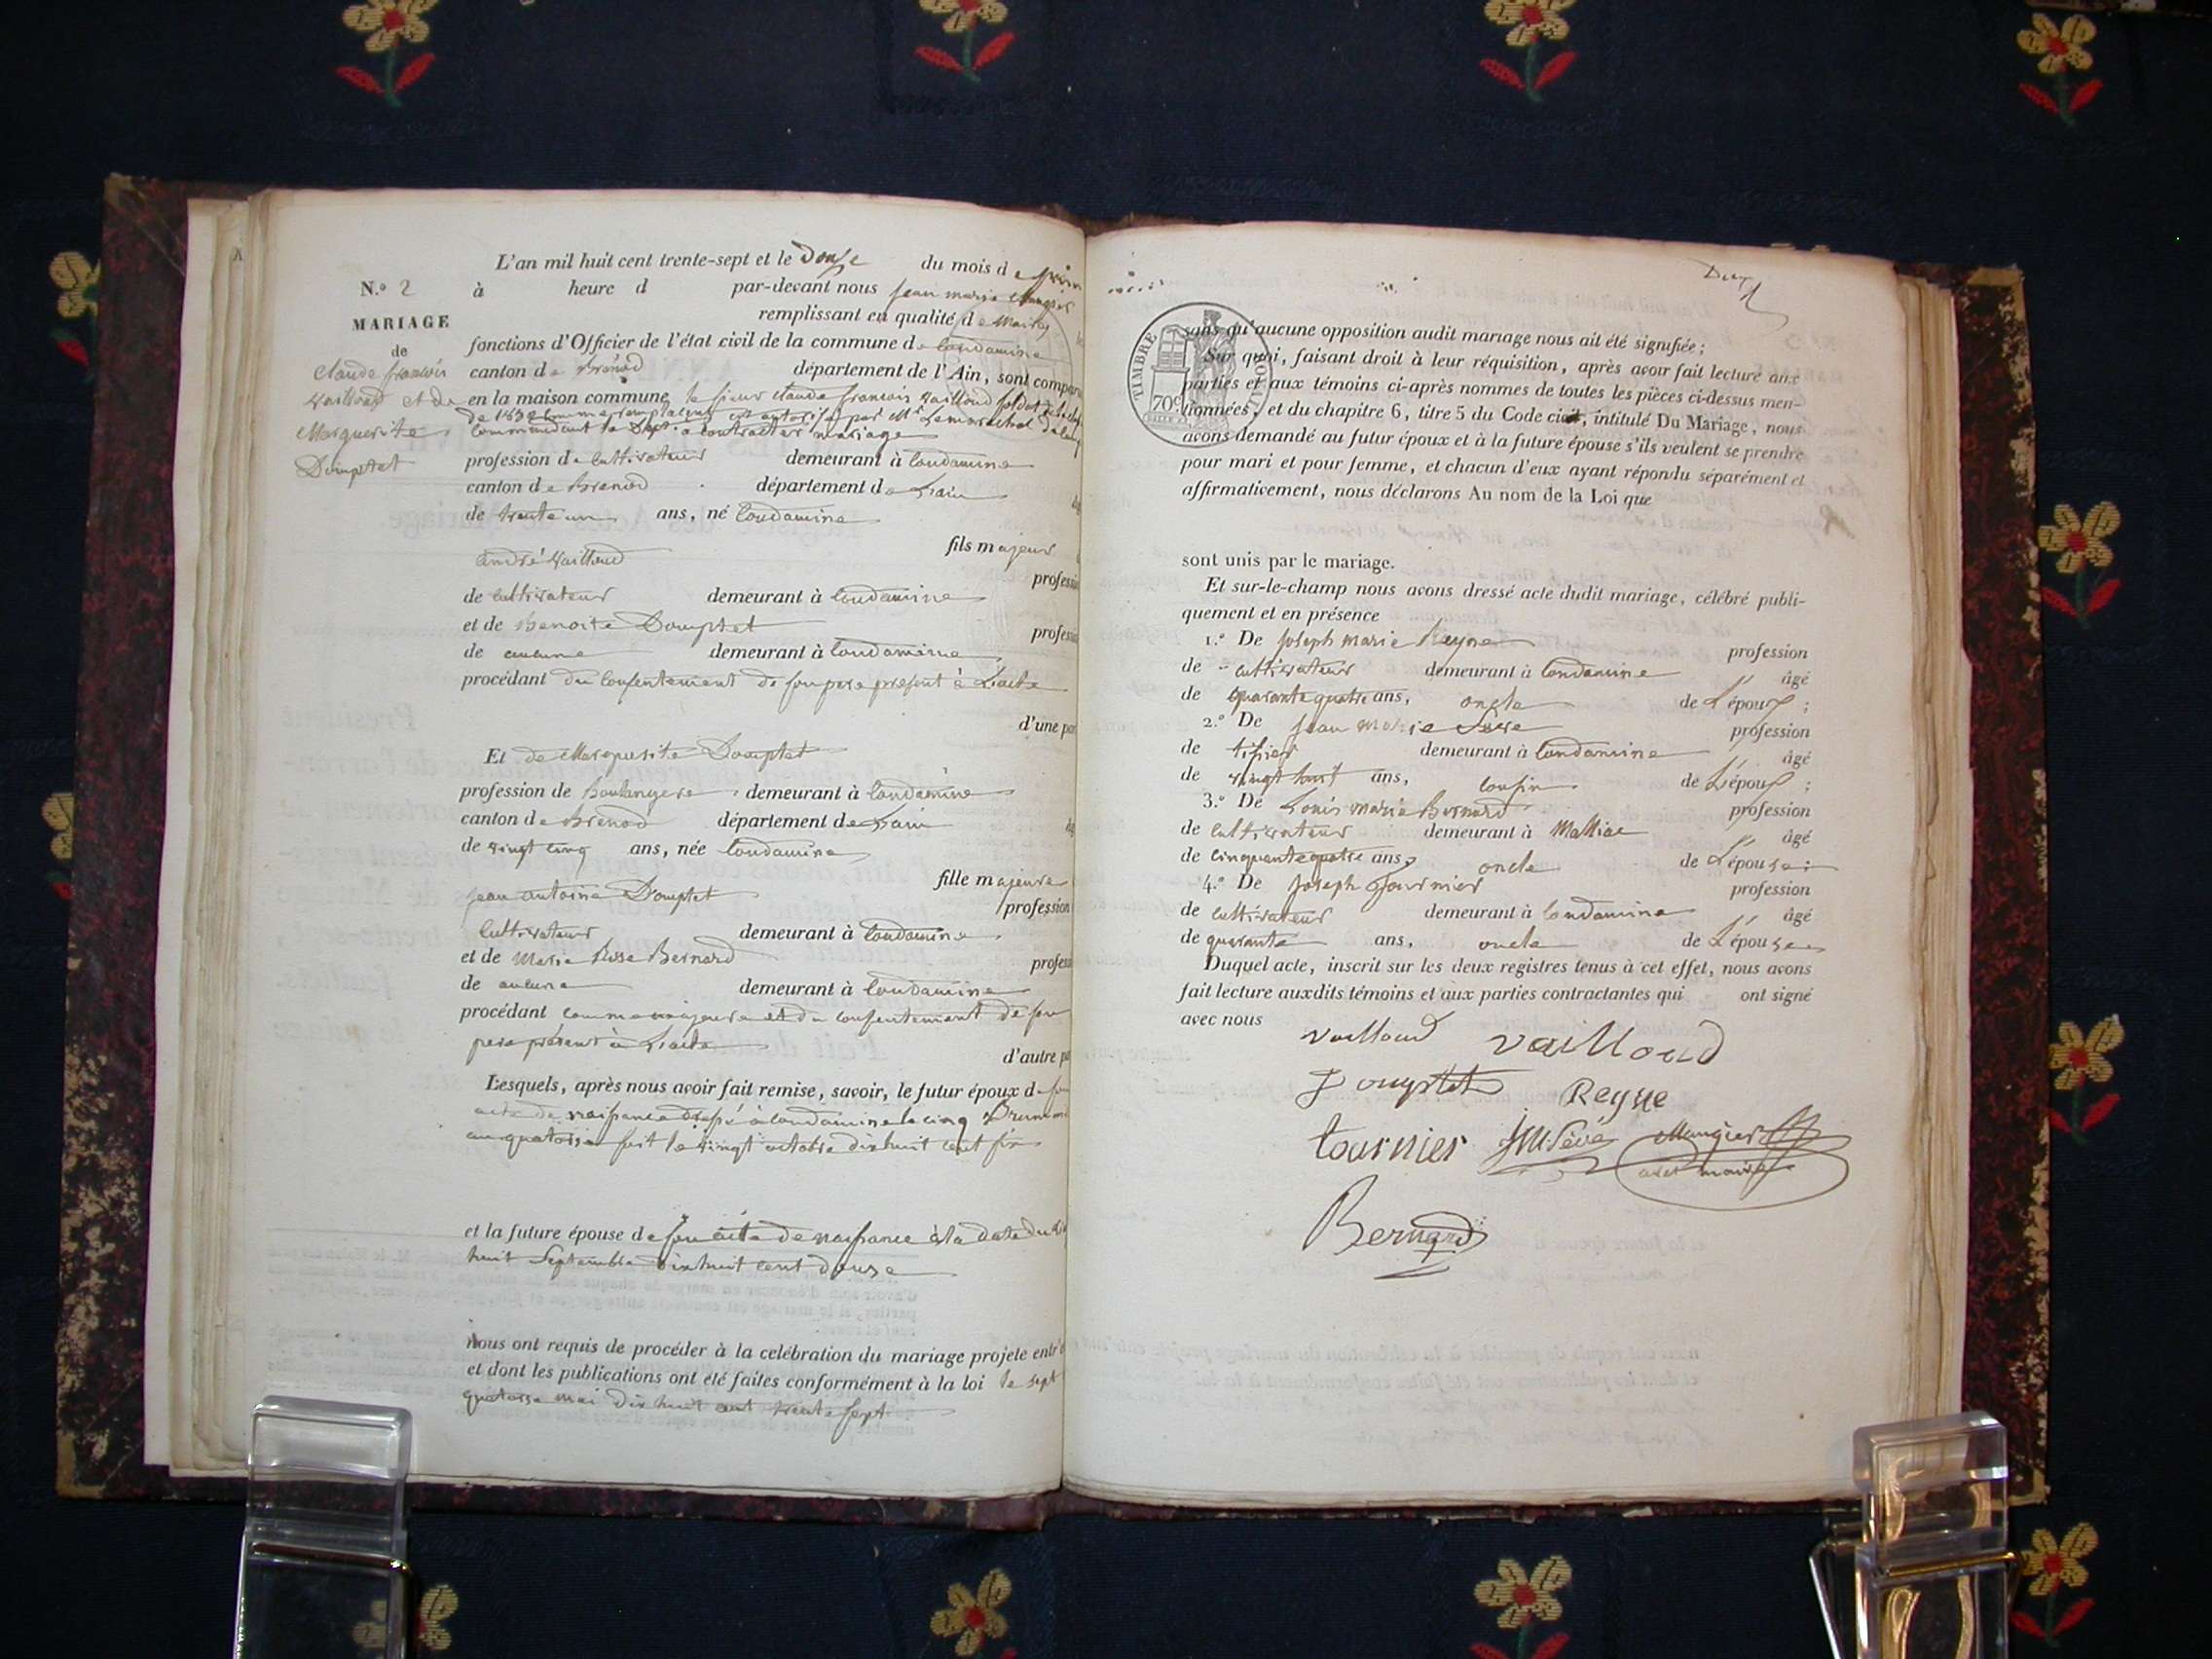 L'an mil huit cent trente-sept et le douze du mois de
N.o 2 à heure d par-devant nous jean marie
MARIAGE remplissant en qualité de Maire
de fonctions d'Officier de l'état civil de la commune de Condamine
Claude francois canton de Brénod département de l'Ain, sont
Vailloud et de en la maison commune le sieur Claude francois Vailloud soldat
Marguerite de comme remplaçant est autorisé par Mr. Lemarechal de camp
commandant le Dept. a contracter mariage
Domptet profession de cultivateur demeurant à Condamine
canton de Brenod département de Lain
de trente un ans, né Condamine
fils majeur
andré Vailloud
de cultivateur demeurant à Condamine
et de Benoite Domptet
de aucune demeurant à Condamine
procédant du consentement de son pere présent à Lacte
Et de Marguerite Domptet
profession de Boulangere demeurant à Condamine
canton de Brenod département de Lain
de vingt cinq ans, née Condamine
fille majeure
jean antoine Domptet profession
cultivateur demeurant à Condamine
et de Marie Bernard
de aucune demeurant à Condamine
procédant comme majeure et du consentement de son
pere présent à Lacte
d'autre
Lesquels, après nous avoir fait remise, savoir, le futur époux de son
acte de naissance à Condamine le cinq
an quatorze soit le vingt octobre dix huit cent six
et la future épouse de son acte de naissance à la date du
huit Septembre dix huit cent douze
Nous ont requis de procéder à la celébration du mariage projete
et dont les publications ont été faites conformément à la loi le sept
quatorze mai dix huit cent trente sept
Deux
TIMBRE ROYAL
70c
sans qu'aucune opposition audit mariage nous ait été signifiée ;
Sur quoi, faisant droit à leur réquisition, après avoir fait lecture aux
parties et aux témoins ci-après nommes de toutes les pièces ci-dessus men-
tionnées, et du chapitre 6, titre 5 du Code civil, intitulé Du Mariage, nous
avons demandé au futur époux et à la future épouse s'ils veulent se prendre
pour mari et pour femme, et chacun d'eux ayant répondu séparément et
affirmativement, nous déclarons Au nom de la Loi que
sont unis par le mariage.
Et sur-le-champ nous avons dressé acte dudit mariage, célébré publi-
quement et en présence
1.o De joseph marie Reyne profession
de cultivateur demeurant à Condamine âgé
de quarante quatre ans, oncle de L'époux ;
2.o De jean marie Sève profession
de tisier demeurant à Condamine âgé
de vingt huit ans, cousin de L'époux ;
3.o De Louis marie Bernard profession
de cultivateur demeurant à Malliac âgé
de cinquante quatre ans, oncle de L'épouse ;
4.o De joseph Tournier profession
de cultivateur demeurant à Condamine âgé
de quarante ans, oncle de L'épouse
Duquel acte, inscrit sur les deux registres tenus à cet effet, nous avons
fait lecture auxdits témoins et aux parties contractantes qui ont signé
avec nous
Vailloud Vailloud
Domptet Reyne
tournier JM Sève Mangier
maire
Bernard